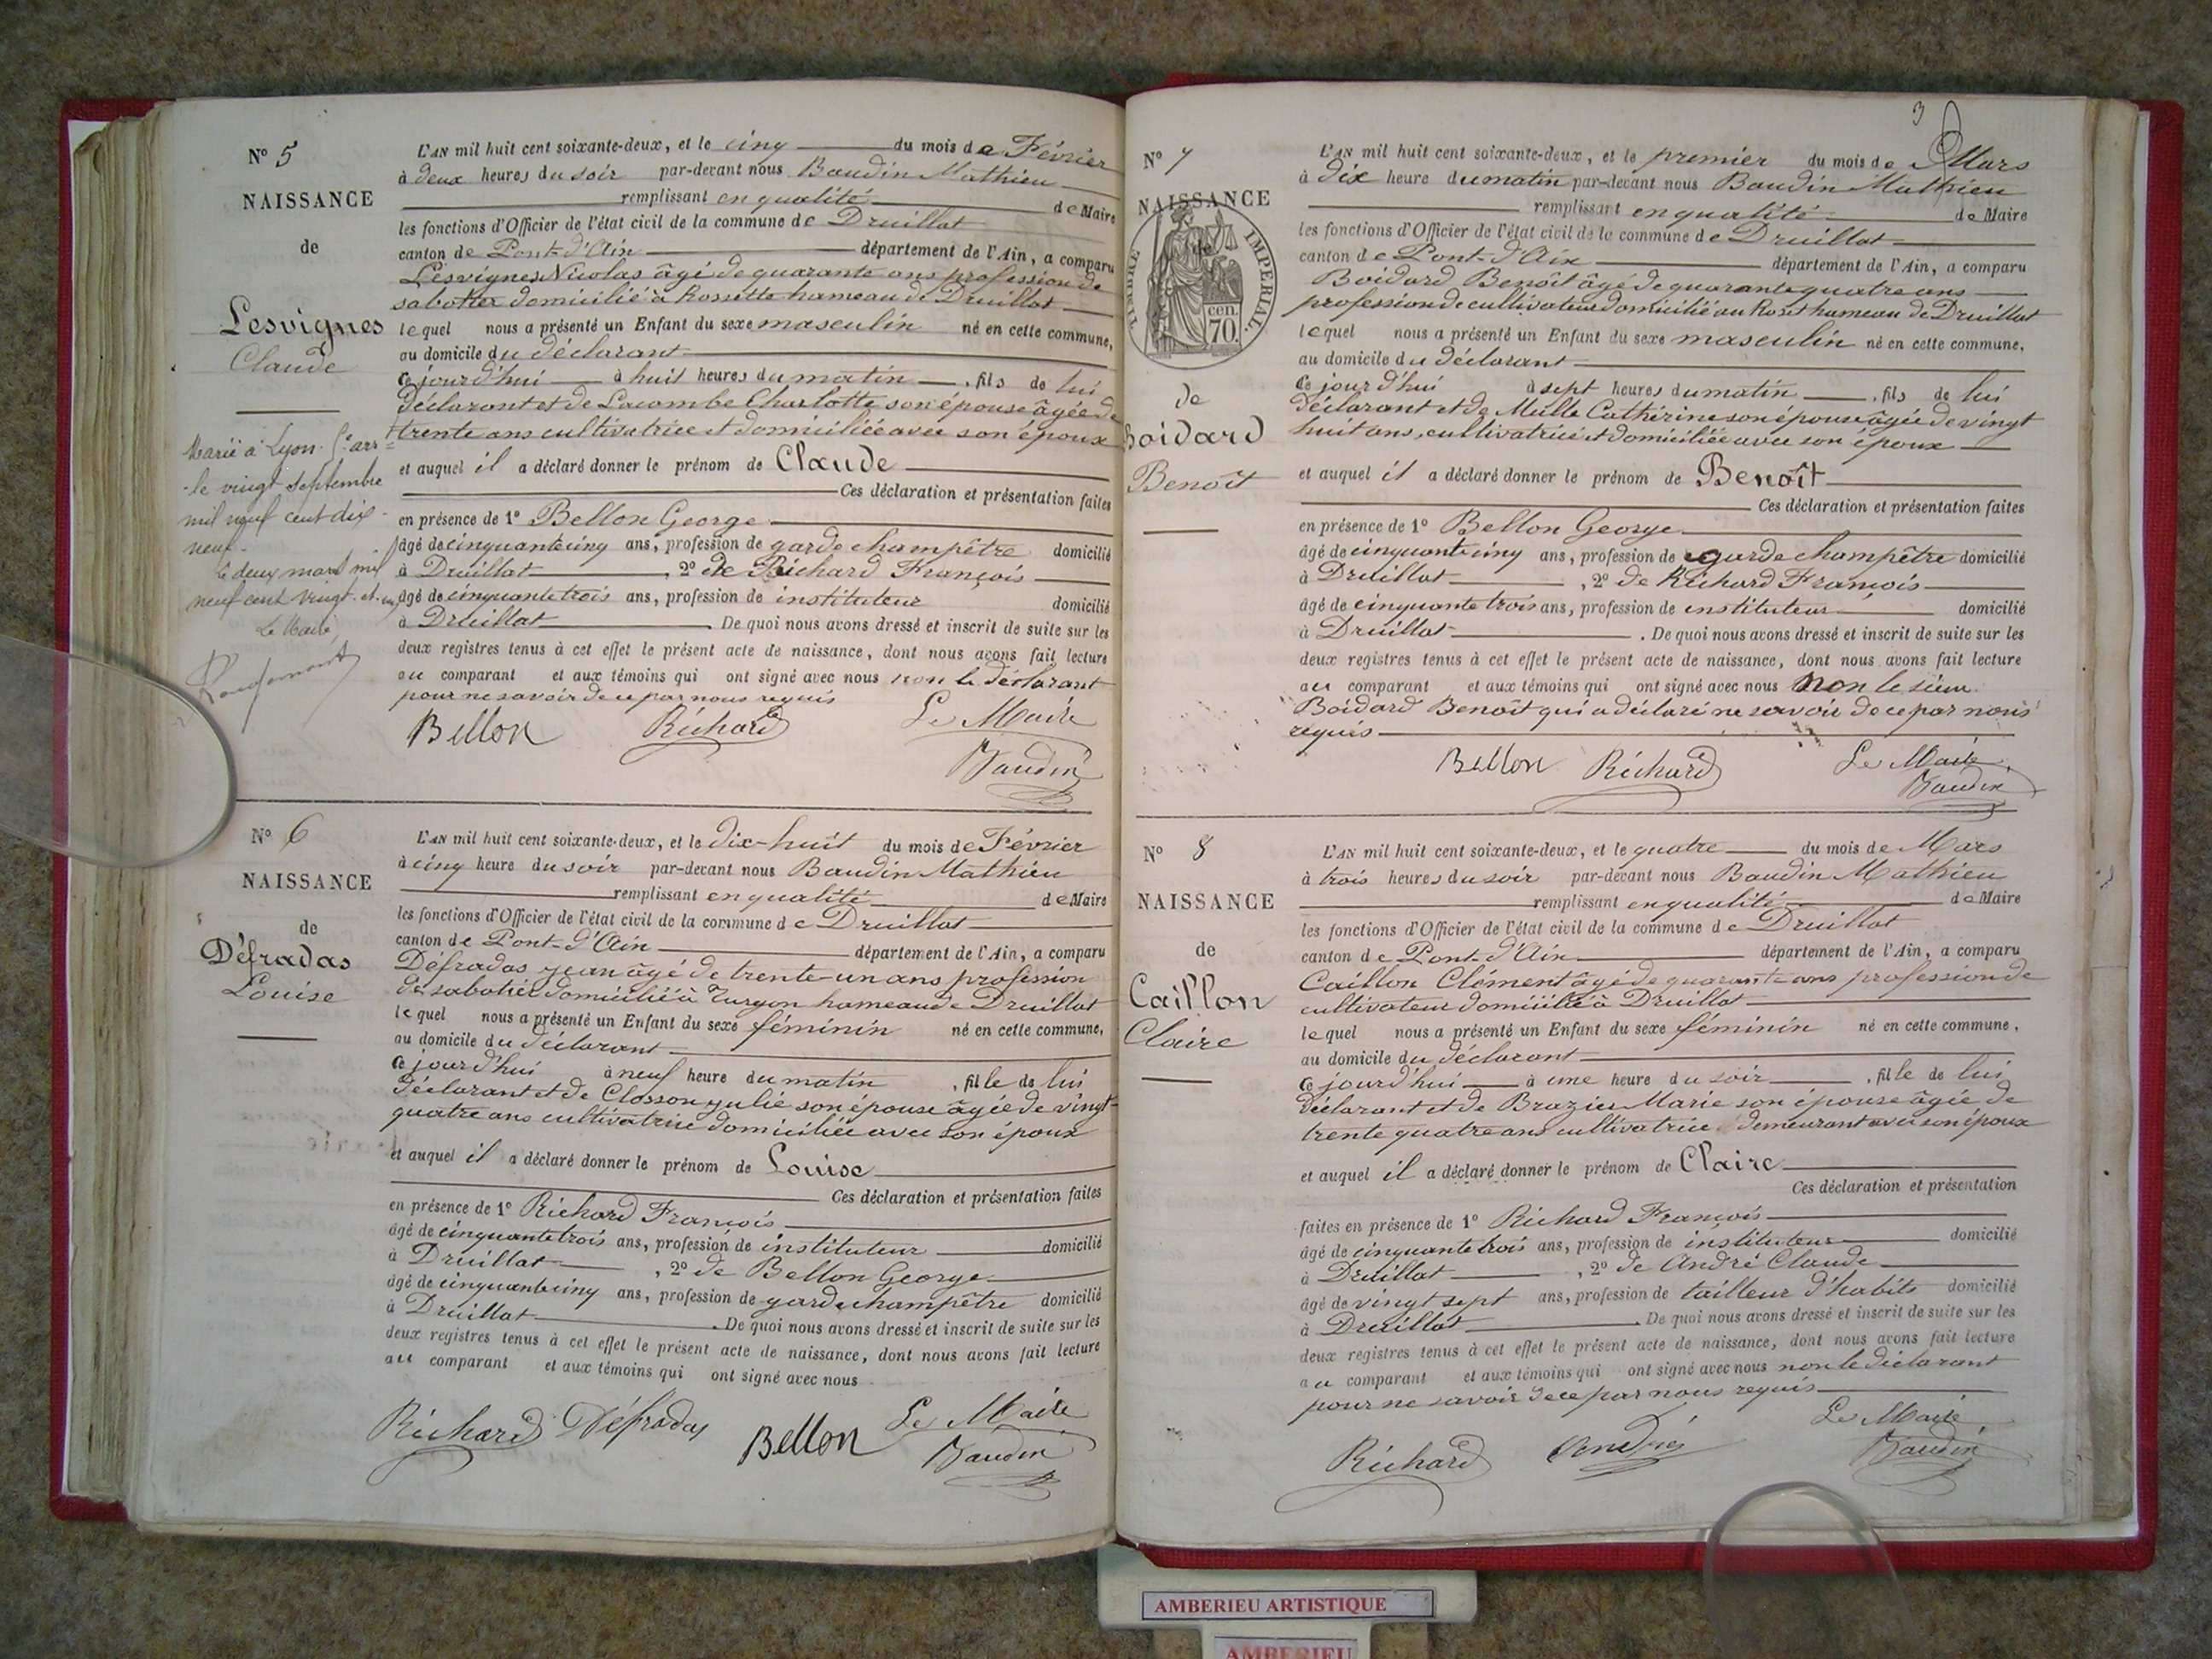 N° 5
NAISSANCE
de
Lesvignes
Claude
Marié à Lyon
le vingt septembre
mil neuf cent dix
neuf
le deux mars mil
neuf cent vingt et un
Le Maire
L'AN mil huit cent soixante-deux, et le cinq du mois de Février
à deux heures du soir par-devant nous Baudin Mathieu
remplissant en qualité de Maire
les fonctions d'Officier de l'état civil de la commune de Druillat
canton de Pont-d'Ain département de l'Ain, a comparu
Lesvignes Nicolas âgé de quarante ans profession de
sabotier domicilié à Rossette hameau de Druillat
lequel nous a présenté un Enfant du sexe masculin né en cette commune,
au domicile du déclarant
ce jourd'hui à huit heures du matin, fils de lui
déclarant et de Lacombe Charlotte son épouse âgée de
trente ans cultivatrice et domiciliée avec son époux
et auquel il a déclaré donner le prénom de Claude
Ces déclaration et présentation faites
en présence de 1° Bellon George
âgé de cinquante cinq ans, profession de garde champêtre domicilié
à Druillat, 2° de Richard François
âgé de cinquante trois ans, profession de instituteur domicilié
à Druillat. De quoi nous avons dressé et inscrit de suite sur les
deux registres tenus à cet effet le présent acte de naissance, dont nous avons fait lecture
au comparant et aux témoins qui ont signé avec nous non le déclarant
pour ne savoir de ce par nous requis
Bellon Richard Le Maire
Baudin
N° 6
NAISSANCE
de
Défradas
Louise
L'AN mil huit cent soixante-deux, et le dix-huit du mois de Février
à cinq heure du soir par-devant nous Baudin Mathieu
remplissant en qualité de Maire
les fonctions d'Officier de l'état civil de la commune de Druillat
canton de Pont-d'Ain département de l'Ain, a comparu
Défradas Jean âgé de trente-un ans profession
de sabotier domicilié à Turgon hameau de Druillat
lequel nous a présenté un Enfant du sexe féminin né en cette commune,
au domicile du déclarant
ce jourd'hui à neuf heure du matin, fille de lui
déclarant et de Closson Julie son épouse âgée de vingt-
quatre ans cultivatrice domiciliée avec son époux
et auquel il a déclaré donner le prénom de Louise
Ces déclaration et présentation faites
en présence de 1° Richard François
âgé de cinquante trois ans, profession de instituteur domicilié
à Druillat, 2° de Bellon George
âgé de cinquante cinq ans, profession de garde champêtre domicilié
à Druillat. De quoi nous avons dressé et inscrit de suite sur les
deux registres tenus à cet effet le présent acte de naissance, dont nous avons fait lecture
au comparant et aux témoins qui ont signé avec nous
Richard Défradas Bellon Le Maire
Baudin
3
N° 7
NAISSANCE
TIMBRE IMPERIAL
70 cen.
de
Boidard
Benoît
L'AN mil huit cent soixante-deux, et le premier du mois de Mars
à dix heure du matin par-devant nous Baudin Mathieu
remplissant en qualité de Maire
les fonctions d'Officier de l'état civil de la commune de Druillat
canton de Pont-d'Ain département de l'Ain, a comparu
Boidard Benoît âgé de quarante quatre ans
profession de cultivateur domicilié au Roset hameau de Druillat
lequel nous a présenté un Enfant du sexe masculin né en cette commune,
au domicile du déclarant
ce jourd'hui à sept heures du matin, fils de lui
déclarant et de Mulle Cathérine son épouse âgée de vingt
huit ans, cultivatrice et domiciliée avec son époux
et auquel il a déclaré donner le prénom de Benoît
Ces déclaration et présentation faites
en présence de 1° Bellon George
âgé de cinquante cinq ans, profession de garde champêtre domicilié
à Druillat, 2° de Richard François
âgé de cinquante trois ans, profession de instituteur domicilié
à Druillat. De quoi nous avons dressé et inscrit de suite sur les
deux registres tenus à cet effet le présent acte de naissance, dont nous avons fait lecture
au comparant et aux témoins qui ont signé avec nous Non le sieur
Boidard Benoît qui a déclaré ne savoir de ce par nous
requis
Bellon Richard Le Maire
Baudin
N° 8
NAISSANCE
de
Caillon
Claire
L'AN mil huit cent soixante-deux, et le quatre du mois de Mars
à trois heures du soir par-devant nous Baudin Mathieu
remplissant en qualité de Maire
les fonctions d'Officier de l'état civil de la commune de Druillat
canton de Pont-d'Ain département de l'Ain, a comparu
Caillon Clément âgé de quarante ans profession de
cultivateur domicilié à Druillat
lequel nous a présenté un Enfant du sexe féminin né en cette commune,
au domicile du déclarant
ce jourd'hui à une heure du soir, fille de lui
déclarant et de Brazier Marie son épouse âgée de
trente quatre ans cultivatrice demeurant avec son époux
et auquel il a déclaré donner le prénom de Claire
Ces déclaration et présentation
faites en présence de 1° Richard François
âgé de cinquante trois ans, profession de instituteur domicilié
à Druillat, 2° de André Claude
âgé de vingt sept ans, profession de tailleur d'habits domicilié
à Druillat. De quoi nous avons dressé et inscrit de suite sur les
deux registres tenus à cet effet le présent acte de naissance, dont nous avons fait lecture
au comparant et aux témoins qui ont signé avec nous non le déclarant
pour ne savoir de ce par nous requis
Richard André Le Maire
Baudin
AMBERIEU ARTISTIQUE
AMBERIEU